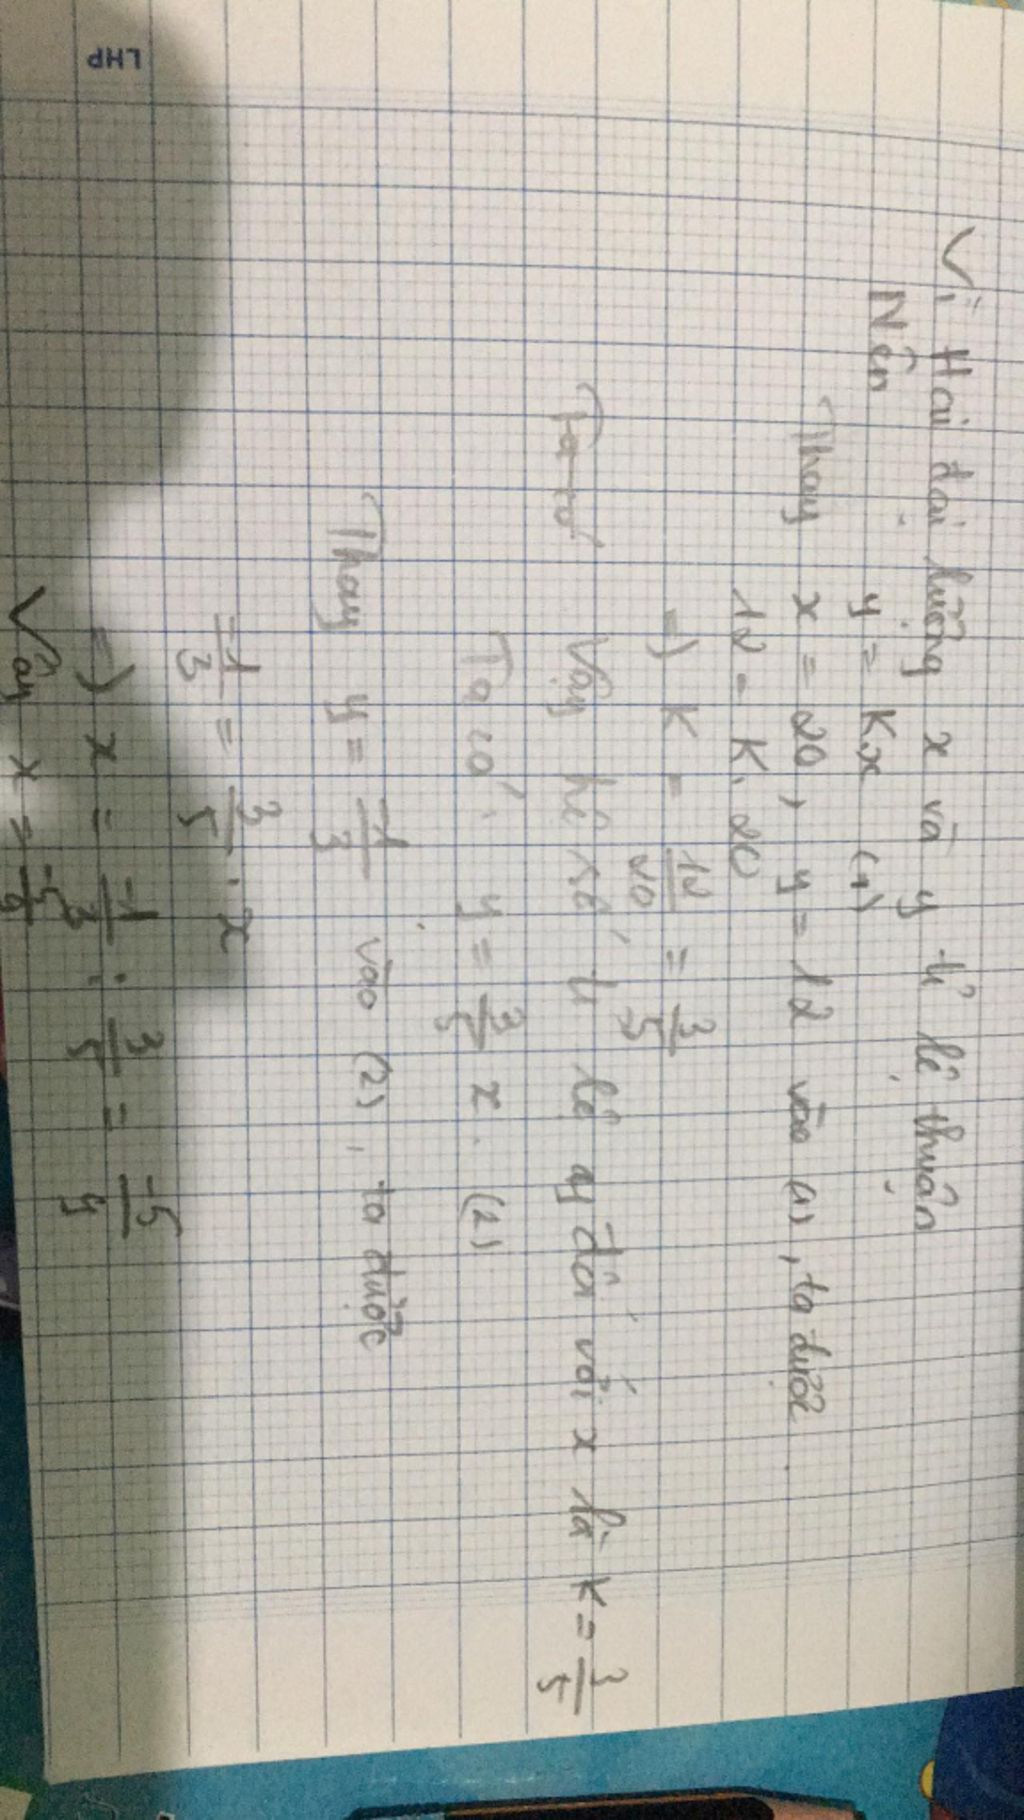 LHP
Vì Hai đại lượng x và y tỉ lệ thuận
Nên y = Kx (1)
Thay x = 20, y = 12 vào (1), ta được
12 = K. 20
=) K = 12/20 = 3/5
Vậy hệ số tỉ lệ đối với x là K = 3/5
Ta có: y = 3/5 x. (2)
Thay y = -1/3 vào (2), ta được
-1/3 = 3/5 . x
=) x = -1/3 : 3/5 = -5/9
Vậy x = -5/9